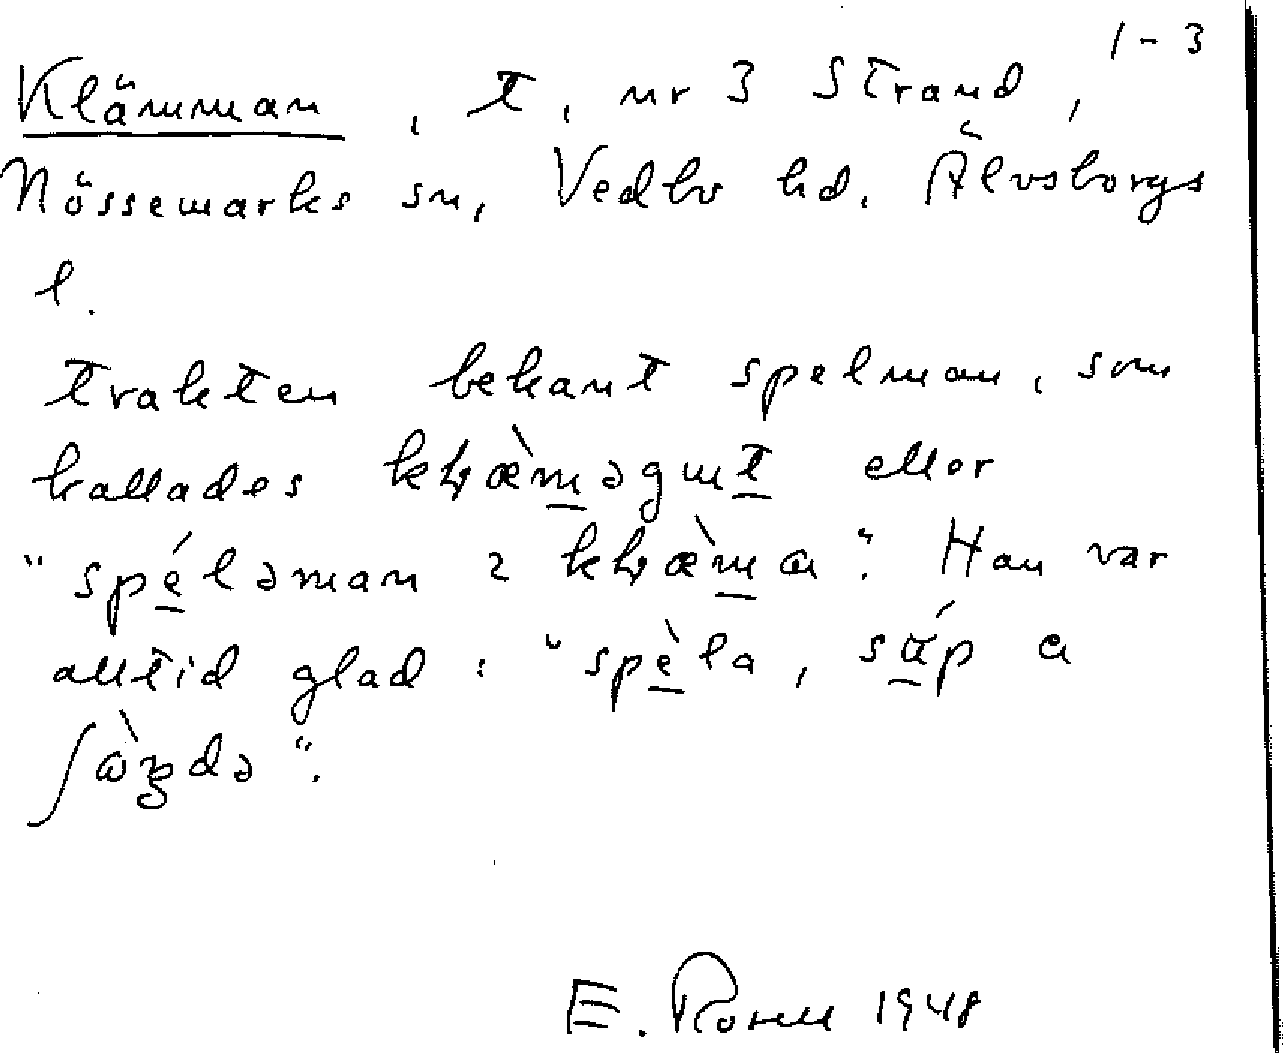 1-3
Klämman, t, nr 3 Strand,
Nössemarks sn, Vedbo hd. Älvsborgs
l.
trakten bekant spelman, som
kallades eller
"spéləman Han var
alltid glad: "spèla, sɑ́p a
".
E. Rohm 1948